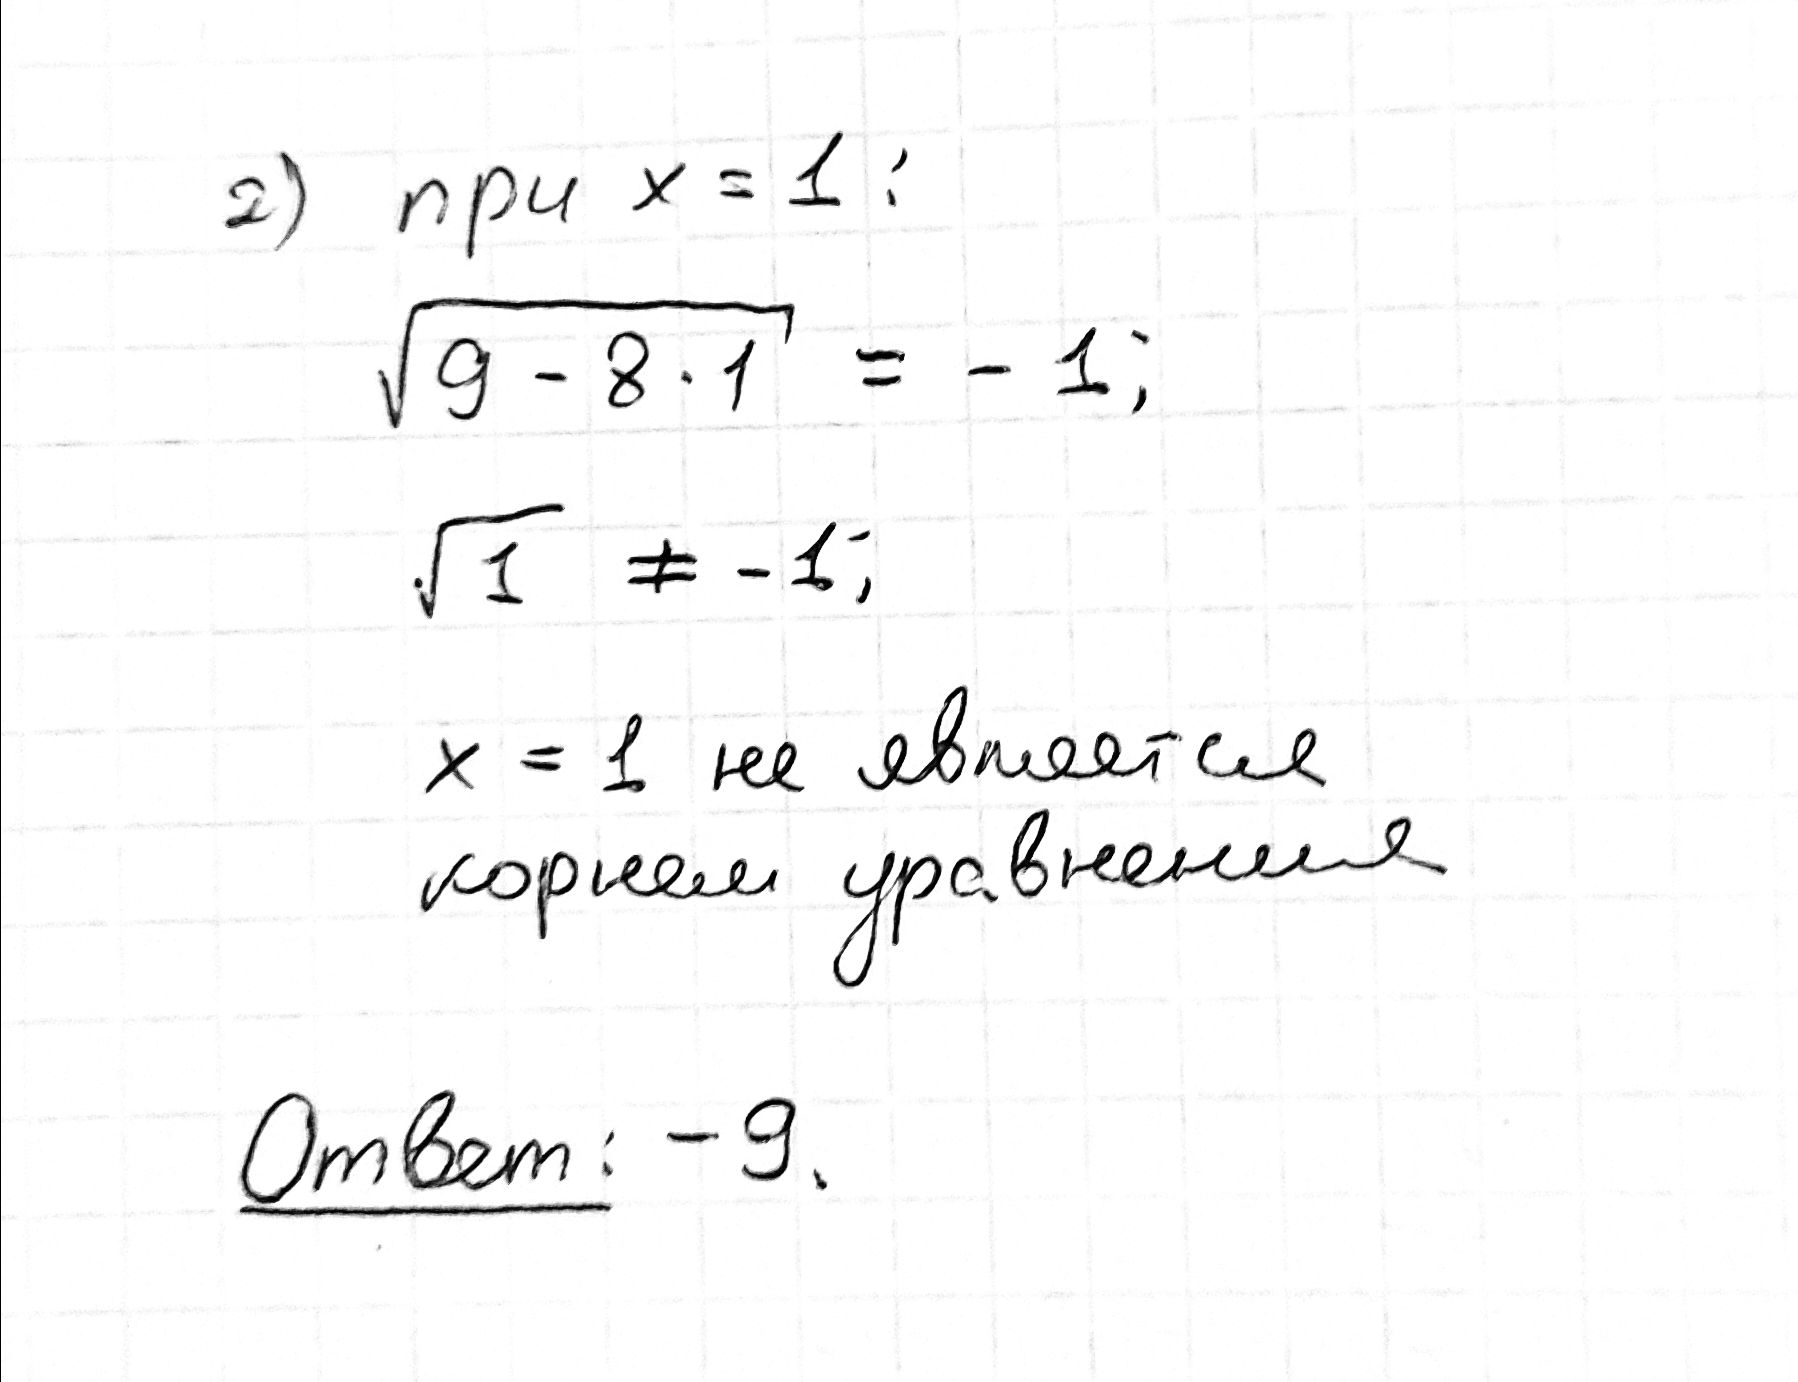 2) при x = 1:
√(9 - 8 · 1) = - 1;
√1 ≠ - 1;
x = 1 не является
корнем уравнения
Ответ: - 9.